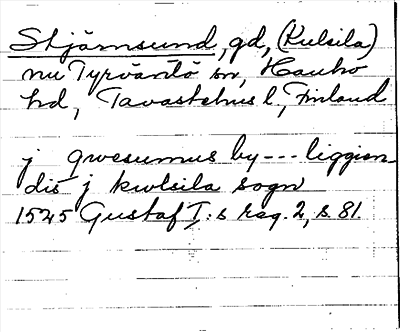 Stjärnsund, gd, (Kulsila)
nu Tyrväntö sn, Hauho
hd, Tavastehus l, Finland
j gwesumus by --- liggien-
dis j kwlsila sogn
1545 Gustaf I:s reg. 2, s. 81.